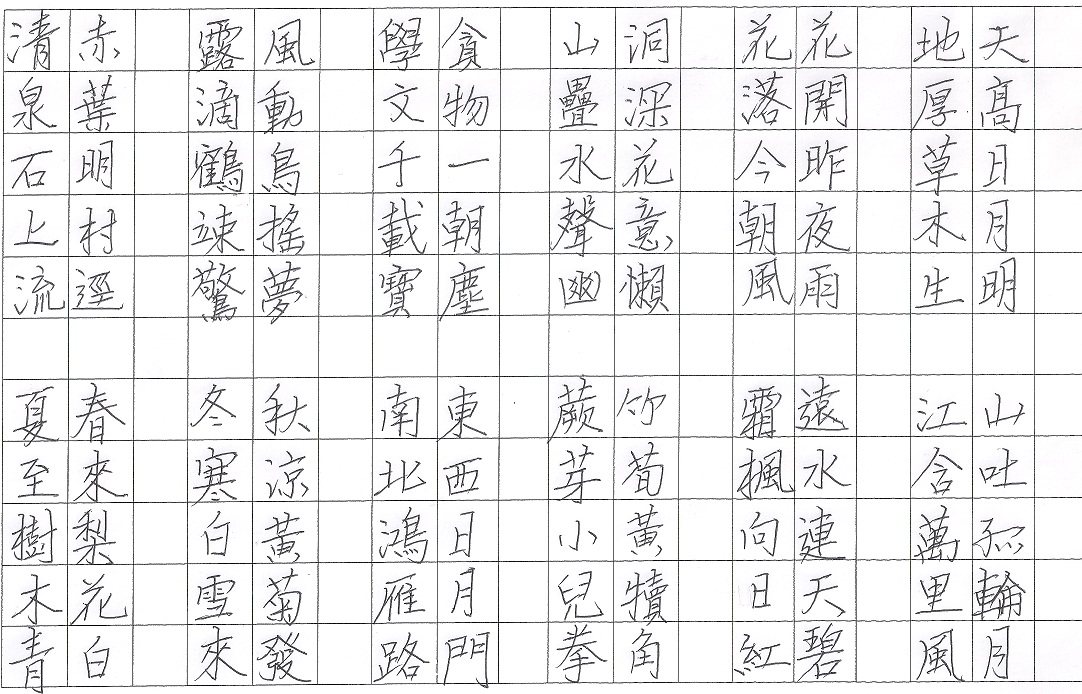 天高日月明
地厚草木生
花開昨夜雨
花落今朝風
洞深花意懶
山疊水聲幽
貪物一朝塵
學文千載寶
風動鳥搖夢
露滴鶴竦驚
赤葉明村逕
清泉石上流
山吐孤輪月
江含萬里風
遠水連天碧
霜楓向日紅
竹筍黃犢角
蕨芽小兒拳
東西日月門
南北鴻雁路
秋涼黃菊發
冬寒白雪來
春來梨花白
夏至樹木青